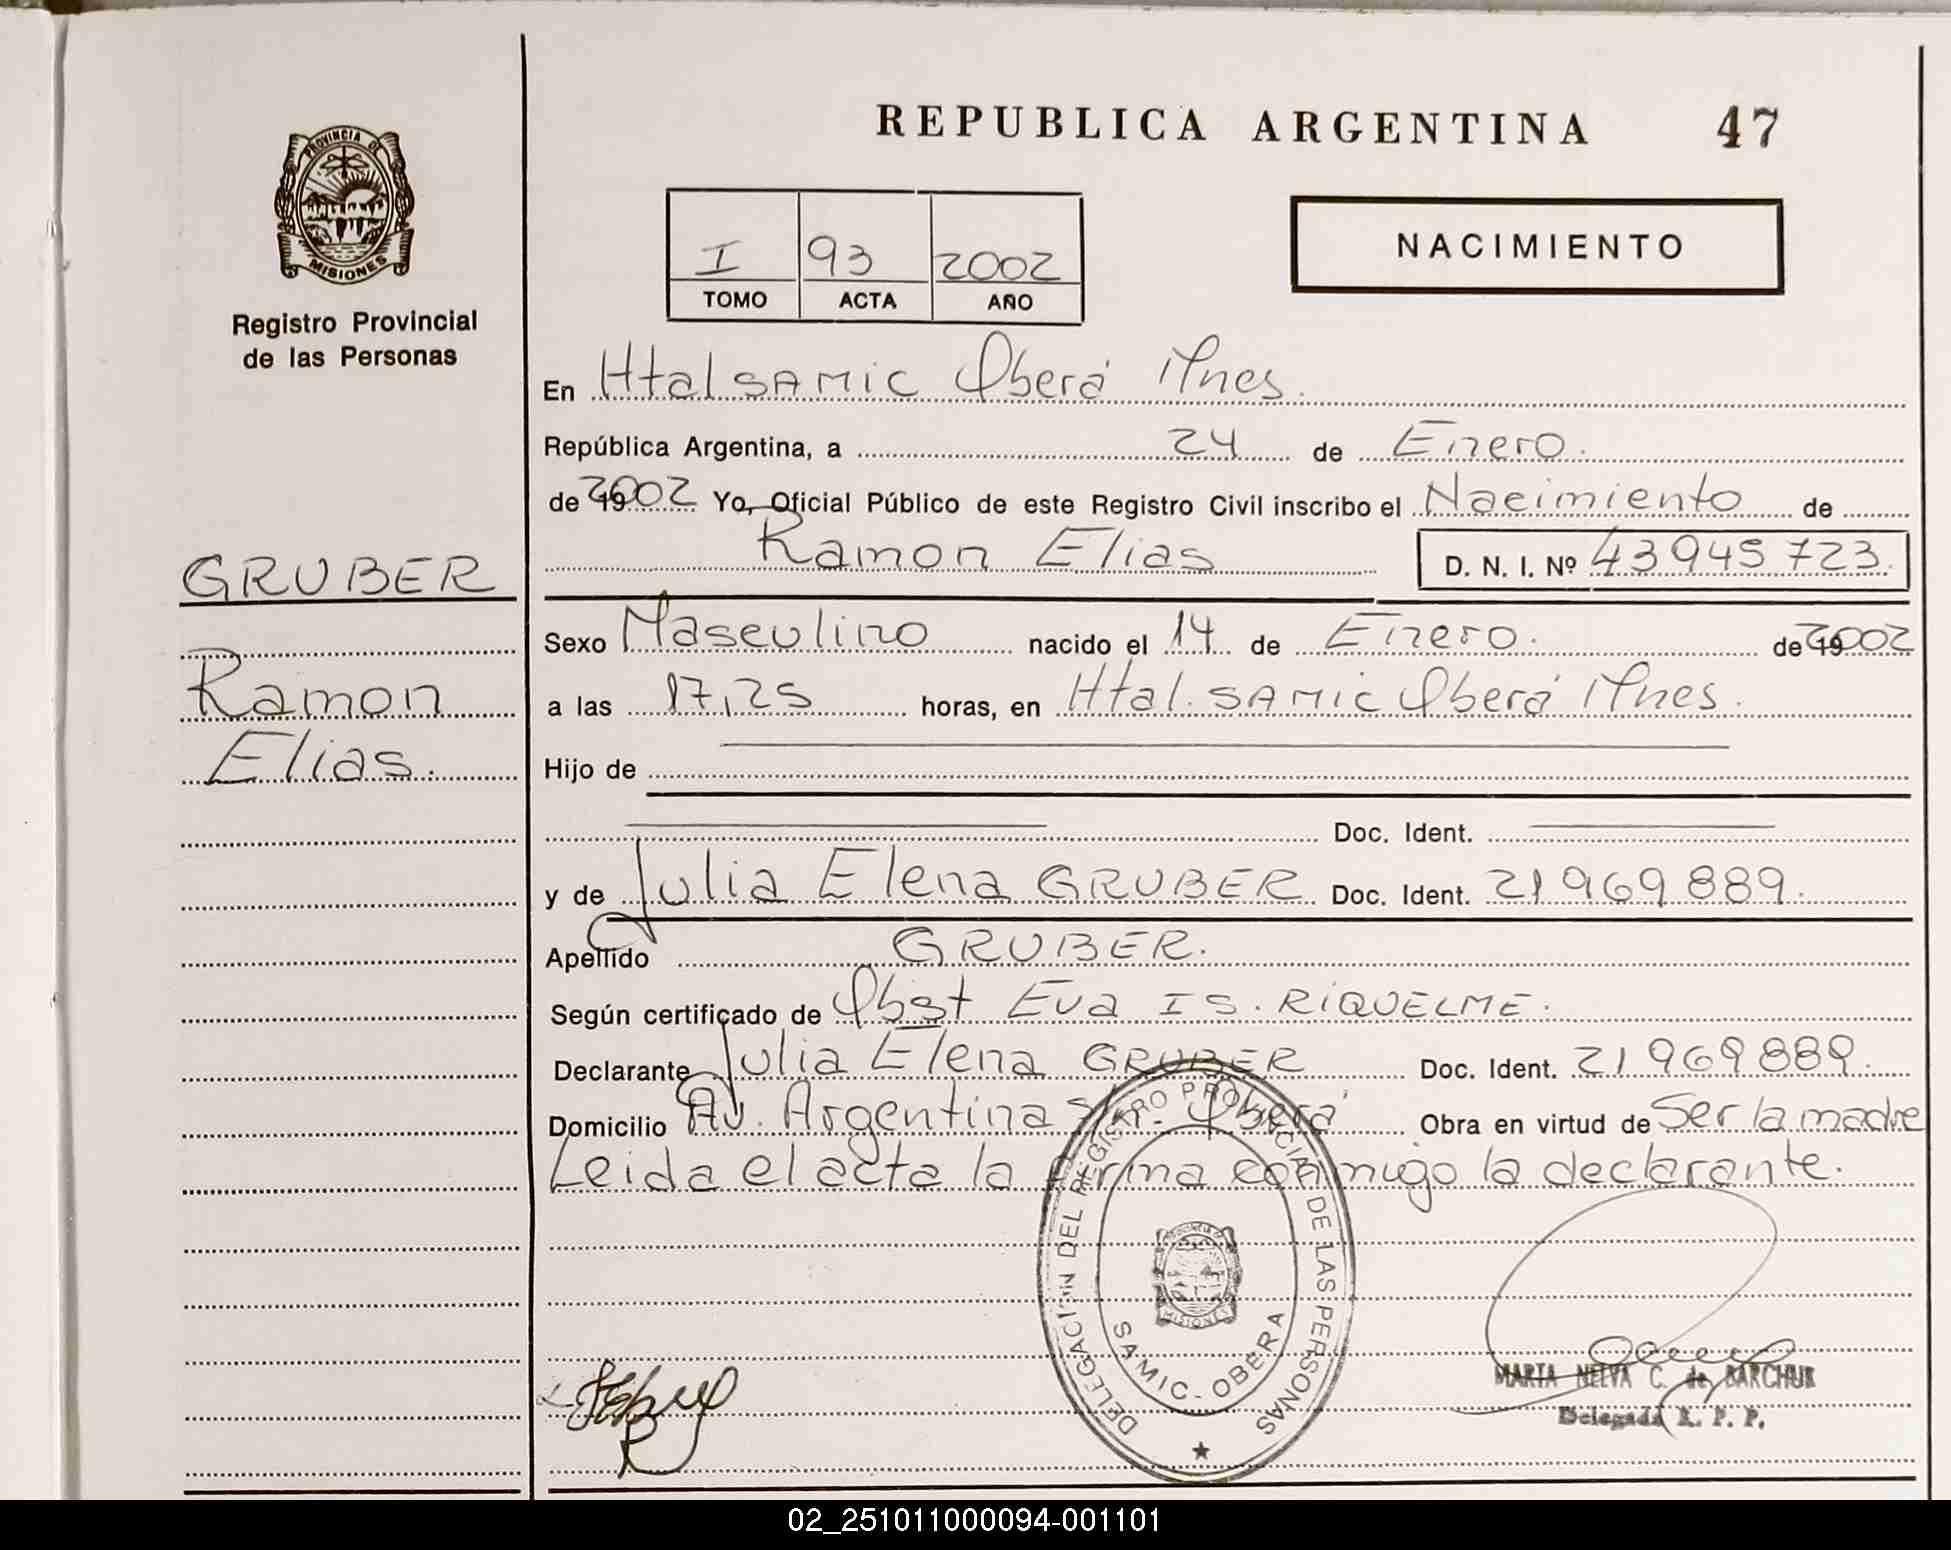 REPUBLICA ARGENTINA 47
PROVINCIA DE
MISIONES
Registro Provincial
de las Personas
I 93 2002
TOMO ACTA AÑO
NACIMIENTO
En Htal SAMIC Oberá Mnes.
República Argentina, a 24 de Enero.
de 2002 Yo, Oficial Público de este Registro Civil inscribo el Nacimiento de
Ramon Elias D. N. I. Nº 43945723.
GRUBER
Ramon
Elias.
Sexo Masculino nacido el 14 de Enero. de 2002
a las 17,25 horas, en Htal. SAMIC Oberá Mnes.
Hijo de
Doc. Ident.
y de Julia Elena GRUBER Doc. Ident. 21969889.
Apellido GRUBER.
Según certificado de Obst Eva IS. RIQUELME.
Declarante Julia Elena GRUBER Doc. Ident. 21969889.
Domicilio Av. Argentina S/n - Oberá Obra en virtud de Ser la madre
Leida el acta la firma conmigo la declarante.
DELEGACION DEL REGISTRO PROVINCIAL DE LAS PERSONAS
SAMIC - OBERA
MISIONES
MARIA NELVA C. de BARCHUK
Delegada R. P. P.
02_251011000094-001101